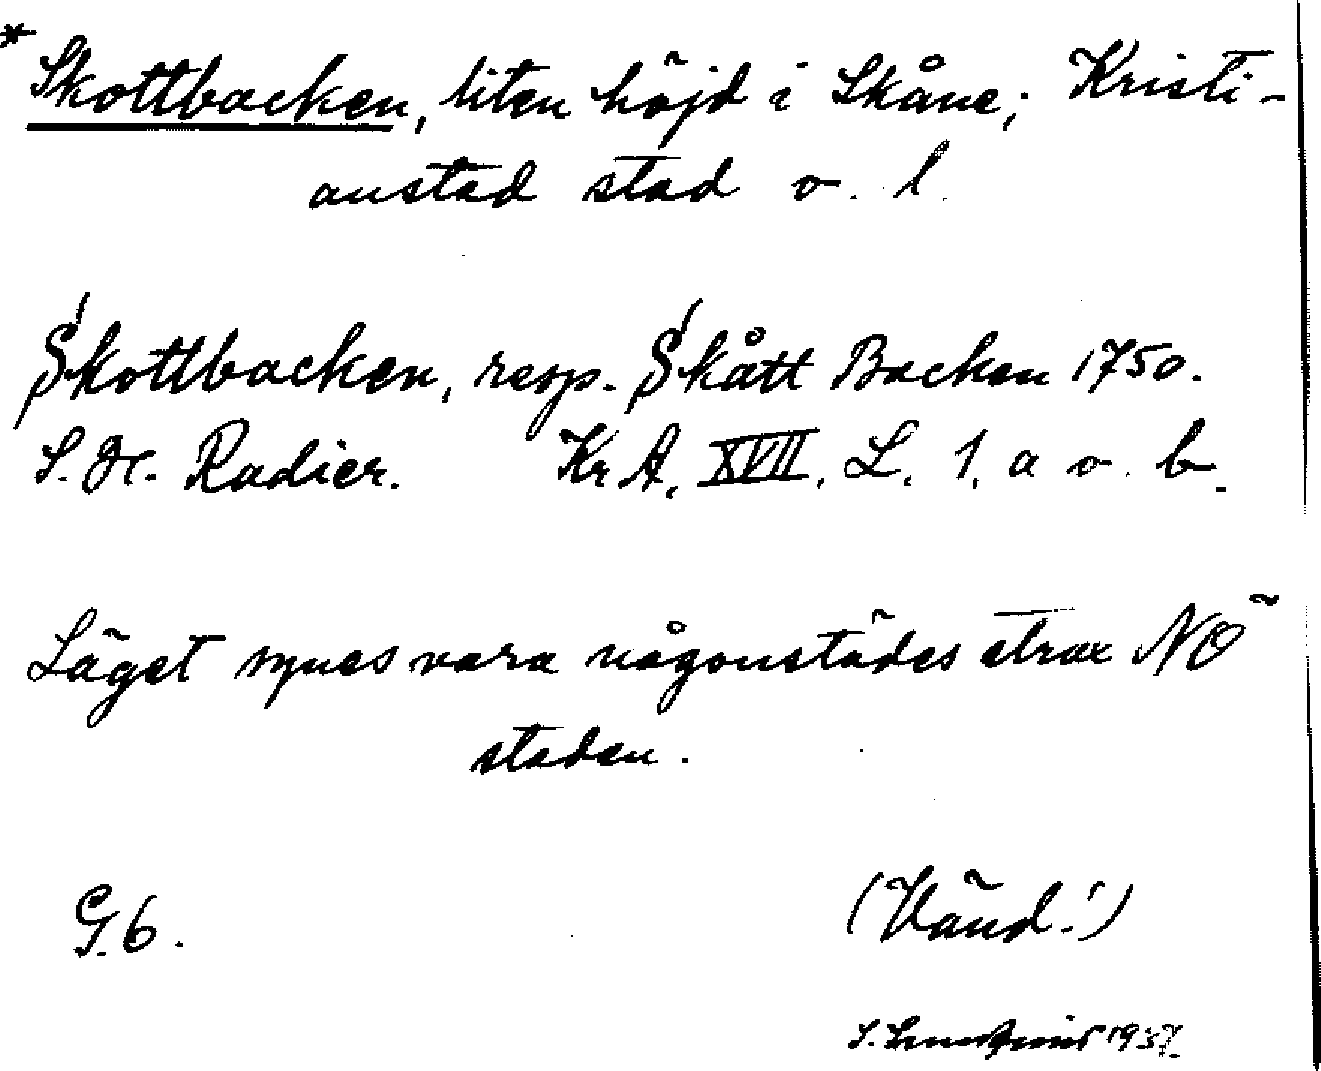 * Skottbacken, liten höjd i Skåne; Kristi-
anstad stad o. l.
Skottbacken, resp. Skått Backen 1750.
S. H. Radier. Kr A, XVII, L. 1, a o. b.
Läget synes vara någonstädes strax NÖ
staden.
G. 6.
(Vänd!)
S. 1937.